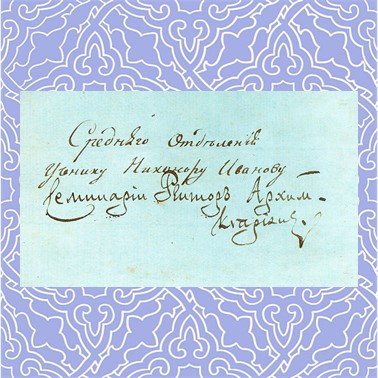 Средняго Отдѣленія
Ученику Никифору Иванову
Семинаріи Ректоръ Архим-